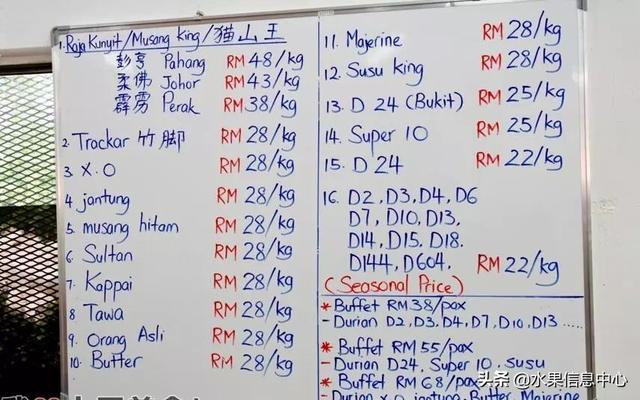 1. Raja Kunyit/Musang king/猫山王
彭亨 Pahang RM 48/kg
柔佛 Johor RM 43/kg
霹雳 Perak RM 38/kg
2. Trackar 竹脚 RM 28/kg
3 X.O RM 28/kg
4 jantung RM 28/kg
5. musang hitam RM 28/kg
6. Sultan RM 28/kg
7. Kappai RM 28/kg
8 Tawa RM 28/kg
9. Orang Asli RM 28/kg
10. Butter RM 28/kg
11. Majerine RM 28/kg
12. Susu king RM 28/kg
13. D 24 (Bukit) RM 25/kg
14. Super 10 RM 25/kg
15. D 24 RM 22/kg
16. D2, D3, D4, D6
D7, D10, D13,
D14, D15. D18.
D144, D604. RM 22/kg
(Seasonal Price)
* Buffet RM 38/pax
- Durian D2, D3, D4, D7, D10, D13 .....
* Buffet RM 55/pax
- Durian D24, Super 10, Susu
* Buffet RM 68/pax
- Durian X.O, jantung, Butter, Majerine
头条 @水果信息中心